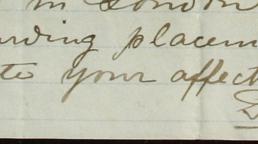 in London
arding placem
te your affect